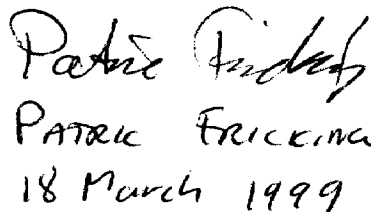 Patric Fricking
PATRIC FRICKING
18 March 1999